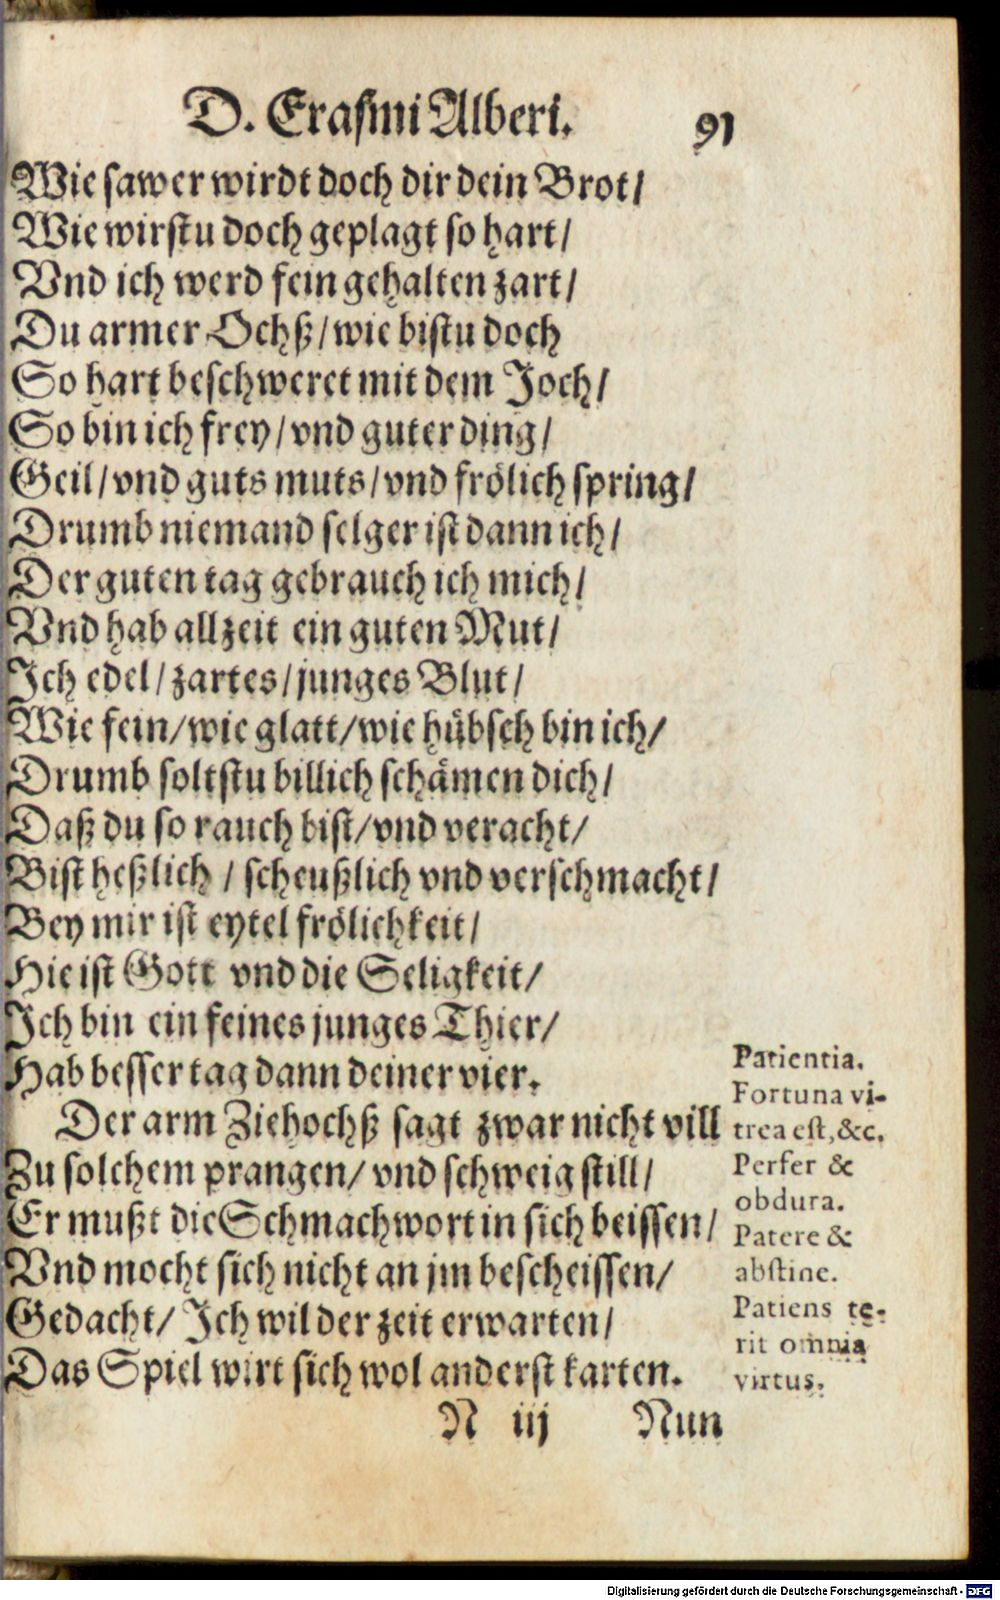 D. Erasmi Alberi. 91
Wie sawer wirdt doch dir dein Brot/
Wie wirstu doch geplagt so hart/
Vnd ich werd fein gehalten zart/
Du armer Ochß/wie bistu doch
So hart beschweret mit dem Joch/
So bin ich frey/vnd guter ding/
Geil/vnd guts muts/vnd frölich spring/
Drumb niemand selger ist dann ich/
Der guten tag gebrauch ich mich/
Vnd hab allzeit ein guten Mut/
Ich edel/zartes/junges Blut/
Wie fein/wie glatt/wie hübsch bin ich/
Drumb soltstu billich schämen dich/
Daß du so rauch bist/vnd veracht/
Bist heßlich / scheußlich vnd verschmacht/
Bey mir ist eytel frölichkeit/
Hie ist Gott vnd die Seligkeit/
Ich bin ein feines junges Thier/
Hab besser tag dann deiner vier.
Der arm Ziehochß sagt zwar nicht vill
Zu solchem prangen/ vnd schweig still/
Er mußt die Schmachwort in sich beissen/
Vnd mocht sich nicht an jm bescheissen/
Gedacht/ Ich wil der zeit erwarten/
Das Spiel wirt sich wol anderst karten.
Patientia.
Fortuna vi-
trea est, &c.
Perfer &
obdura.
Patere &
abstine.
Patiens te-
rit omnia
virtus.
N iij Nun
Digitalisierung gefördert durch die Deutsche Forschungsgemeinschaft - DFG